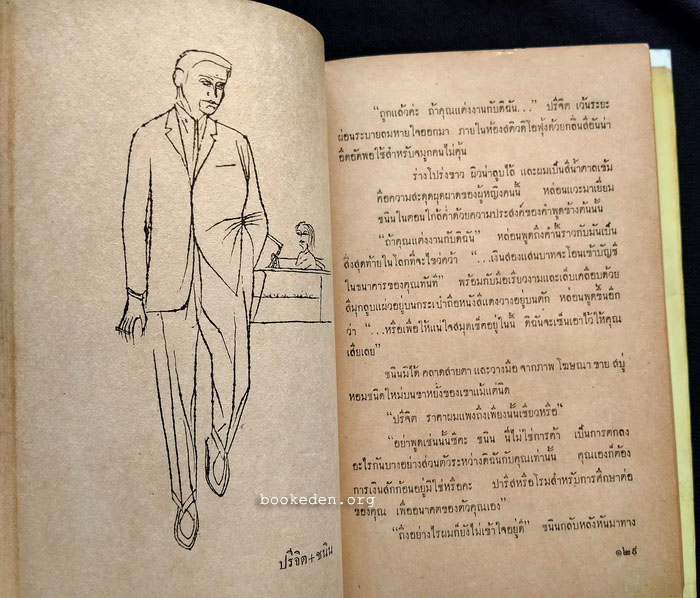 bookeden.org
ปรีจิต+ชนิน
“ถูกแล้วค่ะ ถ้าคุณแต่งงานกับดิฉัน...” ปรีจิต เว้นระยะ
ผ่อนระบายลมหายใจออกมา ภายในห้องสติวดิโอฟุ้งด้วยกลิ่นสีอันน่า
อึดอัดพอใช้สำหรับจมูกคนไม่คุ้น
ร่างโปร่งขาว ผิวน่าลูบไล้ และผมเป็นสีน้ำตาลเข้ม
คือความสะดุดผุดผาดของผู้หญิงคนนี้ หล่อนแวะมาเยี่ยม
ชนินในตอนใกล้ค่ำด้วยความประสงค์ของคำพูดข้างต้นนั้น
“ถ้าคุณแต่งงานกับดิฉัน” หล่อนพูดถึงคำนี้ราวกับมันเป็น
สิ่งสุดท้ายในโลกที่จะไขว่คว้า “...เงินสองแสนบาทจะโอนเข้าบัญชี
ในธนาคารของคุณทันที” พร้อมกับมือเรียวงามและเล็บเคลือบด้วย
สีมุกลูบแผ่วอยู่บนกระเป๋าถือหนังสีแดงวางอยู่บนตัก หล่อนพูดขึ้นอีก
ว่า “...หรือเพื่อให้แน่ใจสมุดเช็คอยู่ในนี้ ดิฉันจะเซ็นเอาไว้ให้คุณ
เสียเลย”
ชนินมิได้ คลาดสายตา และวางมือ จากภาพ โฆษณา ขาย สบู่
หอมชนิดใหม่บนขาหยั่งของเขาแม้แต่นิด
“ปรีจิต ราคาผมแพงถึงเพียงนั้นเชียวหรือ”
“อย่าพูดเช่นนั้นซิคะ ชนิน นี่ไม่ใช่การค้า เป็นการตกลง
อะไรกันบางอย่างส่วนตัวระหว่างดิฉันกับคุณเท่านั้น คุณเองก็ต้อง
การเงินสักก้อนอยู่มิใช่หรือคะ ปารีสหรือโรมสำหรับการศึกษาต่อ
ของคุณ เพื่ออนาคตของตัวคุณเอง”
“ถึงอย่างไรผมก็ยังไม่เข้าใจอยู่ดี” ชนินกลับหลังหันมาทาง
๑๒๙